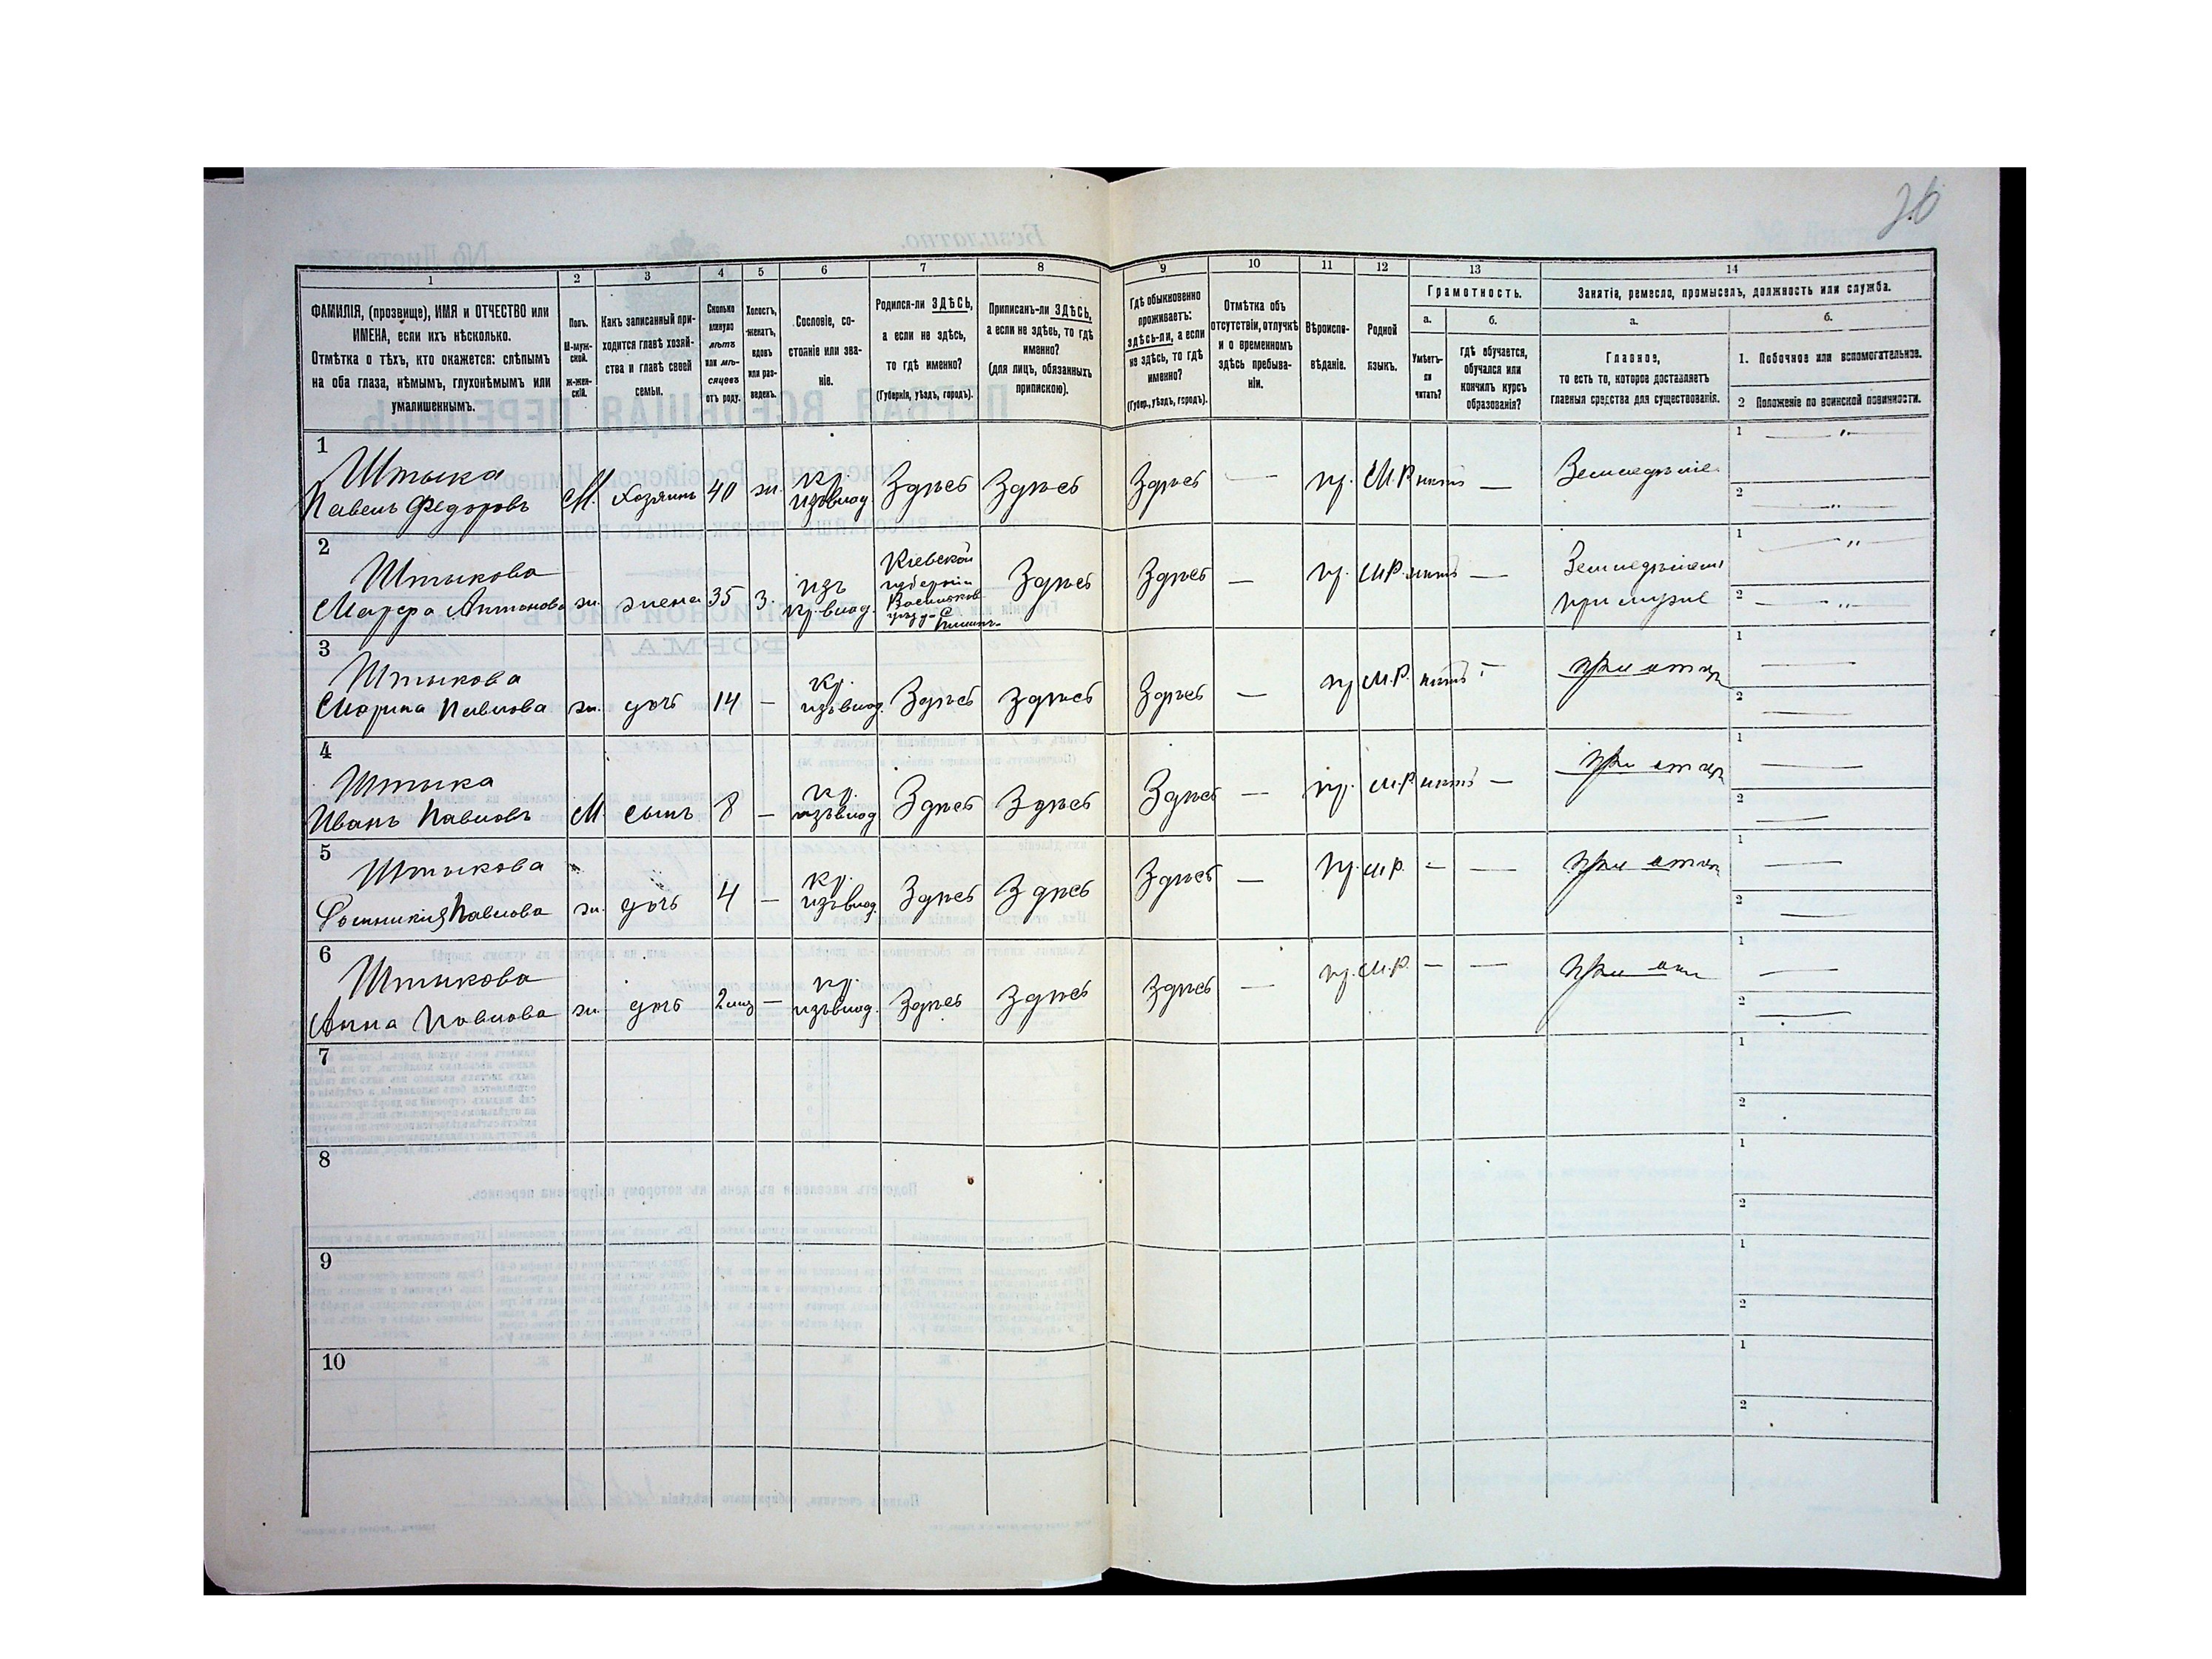 26
1 2 3 4 5 6 7 8 9 10 11 12 13 14
ФАМИЛІЯ, (прозвище), ИМЯ и ОТЧЕСТВО или
ИМЕНА, если ихъ нѣсколько.
Отмѣтка о тѣхъ, кто окажется: слѣпымъ
на оба глаза, нѣмымъ, глухонѣмымъ или
умалишеннымъ.
Полъ.
М-муж-
ской.
Ж-жен-
скій.
Какъ записанный при-
ходится главѣ хозяй-
ства и главѣ своей
семьи.
Сколько
минуло
лѣтъ
или мѣ-
сяцевъ
отъ роду.
Холостъ,
женатъ,
вдовъ
или раз-
веденъ.
Сословіе, со-
стояніе или зва-
ніе.
Родился-ли ЗДѢСЬ,
а если не здѣсь,
то гдѣ именно?
(Губернія, уѣздъ, городъ).
Приписанъ-ли ЗДѢСЬ,
а если не здѣсь, то гдѣ
именно?
(для лицъ, обязанныхъ
припискою).
Гдѣ обыкновенно
проживаетъ:
здѣсь-ли, а если
не здѣсь, то гдѣ
именно?
(Губер., уѣздъ, городъ).
Отмѣтка объ
отсутствіи, отлучкѣ
и о временномъ
здѣсь пребыва-
ніи.
Вѣроиспо-
вѣданіе.
Родной
языкъ.
Грамотность.
а.
Умѣетъ-
ли
читать?
б.
гдѣ обучается,
обучался или
кончилъ курсъ
образованія?
Занятіе, ремесло, промыселъ, должность или служба.
а.
Главное,
то есть то, которое доставляетъ
главныя средства для существованія.
б.
1. Побочное или вспомогательное.
2 Положеніе по воинской повинности.
1
Штыка
Павелъ Федоровъ М. хозяинъ 40 ж. кр. изъ влад. Здѣсь Здѣсь Здѣсь — пр. М.Р. нѣтъ — Земледѣліе
1 — " —
2 — " —
2
Штыкова
Марфа Антонова ж. жена 35 з. изъ кр. влад.
Кіевской
губерніи
Васильков.
уѣзд. С.
Здѣсь Здѣсь — пр. М.Р. нѣтъ —
при мужѣ
1 — " —
2 — " —
3
Штыкова
Марина Павлова ж. дочь 14 — кр. изъ влад. Здѣсь Здѣсь Здѣсь — пр М.Р. нѣтъ — при отцѣ
1 —
2 —
4
Штыка
Иванъ Павловъ М. сынъ 8 — кр. изъ влад Здѣсь Здѣсь Здѣсь — пр. М.Р нѣтъ — при отцѣ
1 —
2 —
5
Штыкова
Павлова ж. дочь 4 — кр. изъ влад. Здѣсь Здѣсь Здѣсь — пр. М.Р. — — при отцѣ
1 —
2 —
6
Штыкова
Анна Павлова ж. дочь 2 мѣс — кр. изъ влад. Здѣсь Здѣсь Здѣсь — пр. М.Р. — — при
1 —
2 —
7
1
2
8
1
2
9
1
2
10
1
2